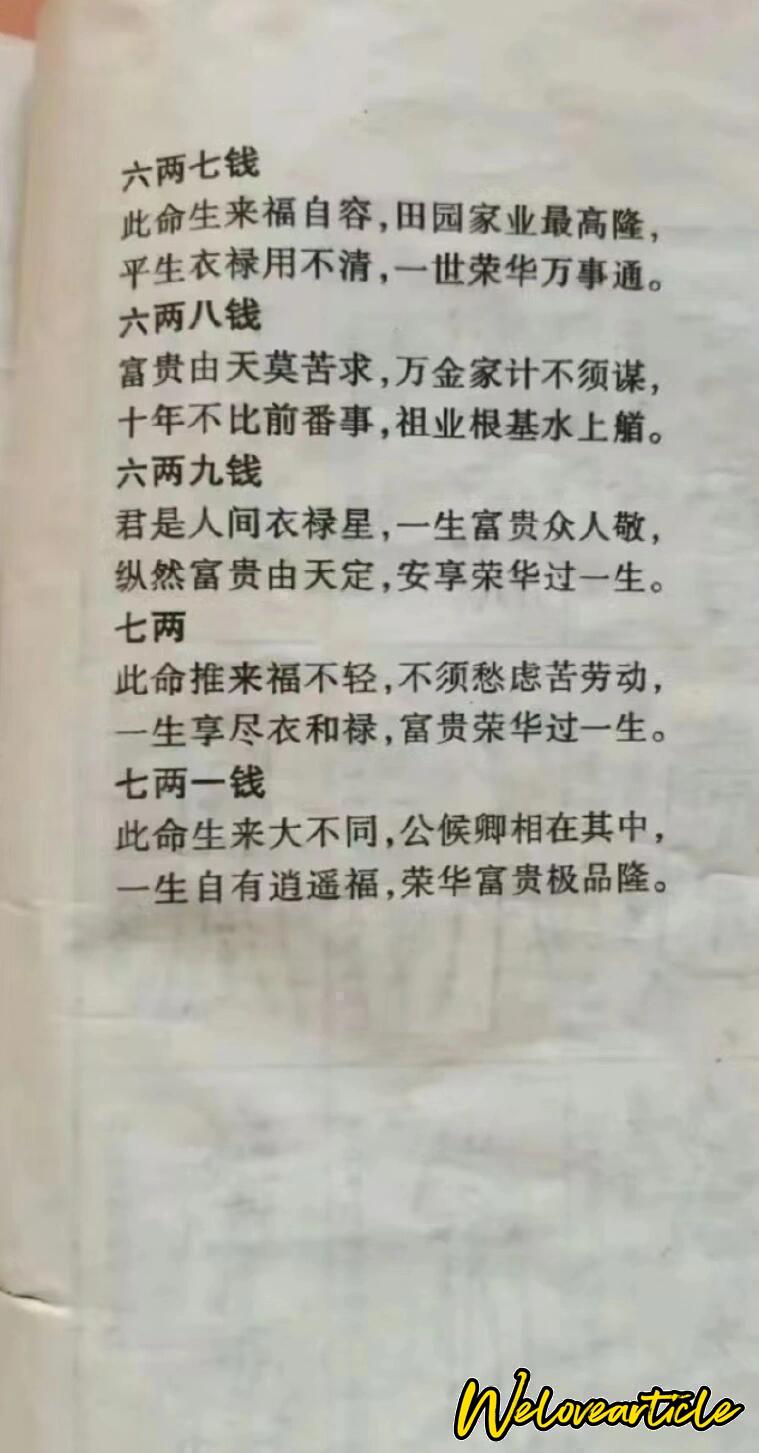 六两七钱
此命生来福自容,田园家业最高隆,
平生衣禄用不清,一世荣华万事通。
六两八钱
富贵由天莫苦求,万金家计不须谋,
十年不比前番事,祖业根基水上艏。
六两九钱
君是人间衣禄星,一生富贵众人敬,
纵然富贵由天定,安享荣华过一生。
七两
此命推来福不轻,不须愁虑苦劳动,
一生享尽衣和禄,富贵荣华过一生。
七两一钱
此命生来大不同,公候卿相在其中,
一生自有逍遥福,荣华富贵极品隆。
Welovearticle